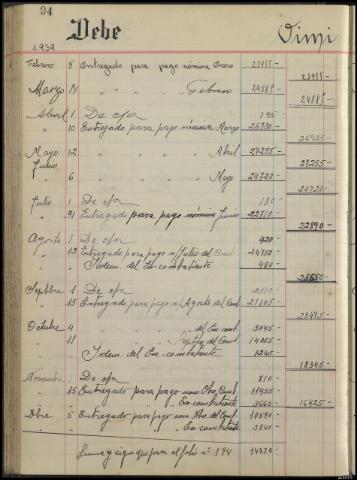 94
Debe
1939
Febrero 8 Entregado para pago nómina Enero 23955-
23955-
Marzo 11 " " " " Febrero 24889-
24889-
Abril 1 De efa 195-
" 10 Entregado para pago nómina Marzo 26730-
26925-
Mayo 12 " " " " Abril 27255-
27255-
Junio
" 6 " " " " Mayo 24720-
24720-
Julio 1 De efa 180-
" 31 Entregado para pago nómina Junio 22710-
22890-
Agosto 1 De efa 420-
" 12 Entregado para pago n/ Julio del Comb 24750-
" Idem. del Ex-combatiente 480-
25650-
Septbre 1 De efa
" 15 Entregado para pago n/ Agosto del Comb 21105-
Octubre 4 " " " " del Ex-comb 3045-
" 11 " " " " Septbre del Comb 14055-
" Idem. del Ex-combatiente 1245-
18345-
Noviembre 1 De efa 810-
" 15 Entregado para pago nom Obre. Comb 11955-
" " " Ex-combatiente 3660-
16425-
Dbre 5 Entregado para pago nom Nbre. del Comb. 10590-
" " " " Ex-combatiente 3840-
Suma y sigue para al folio nº 194 14430-